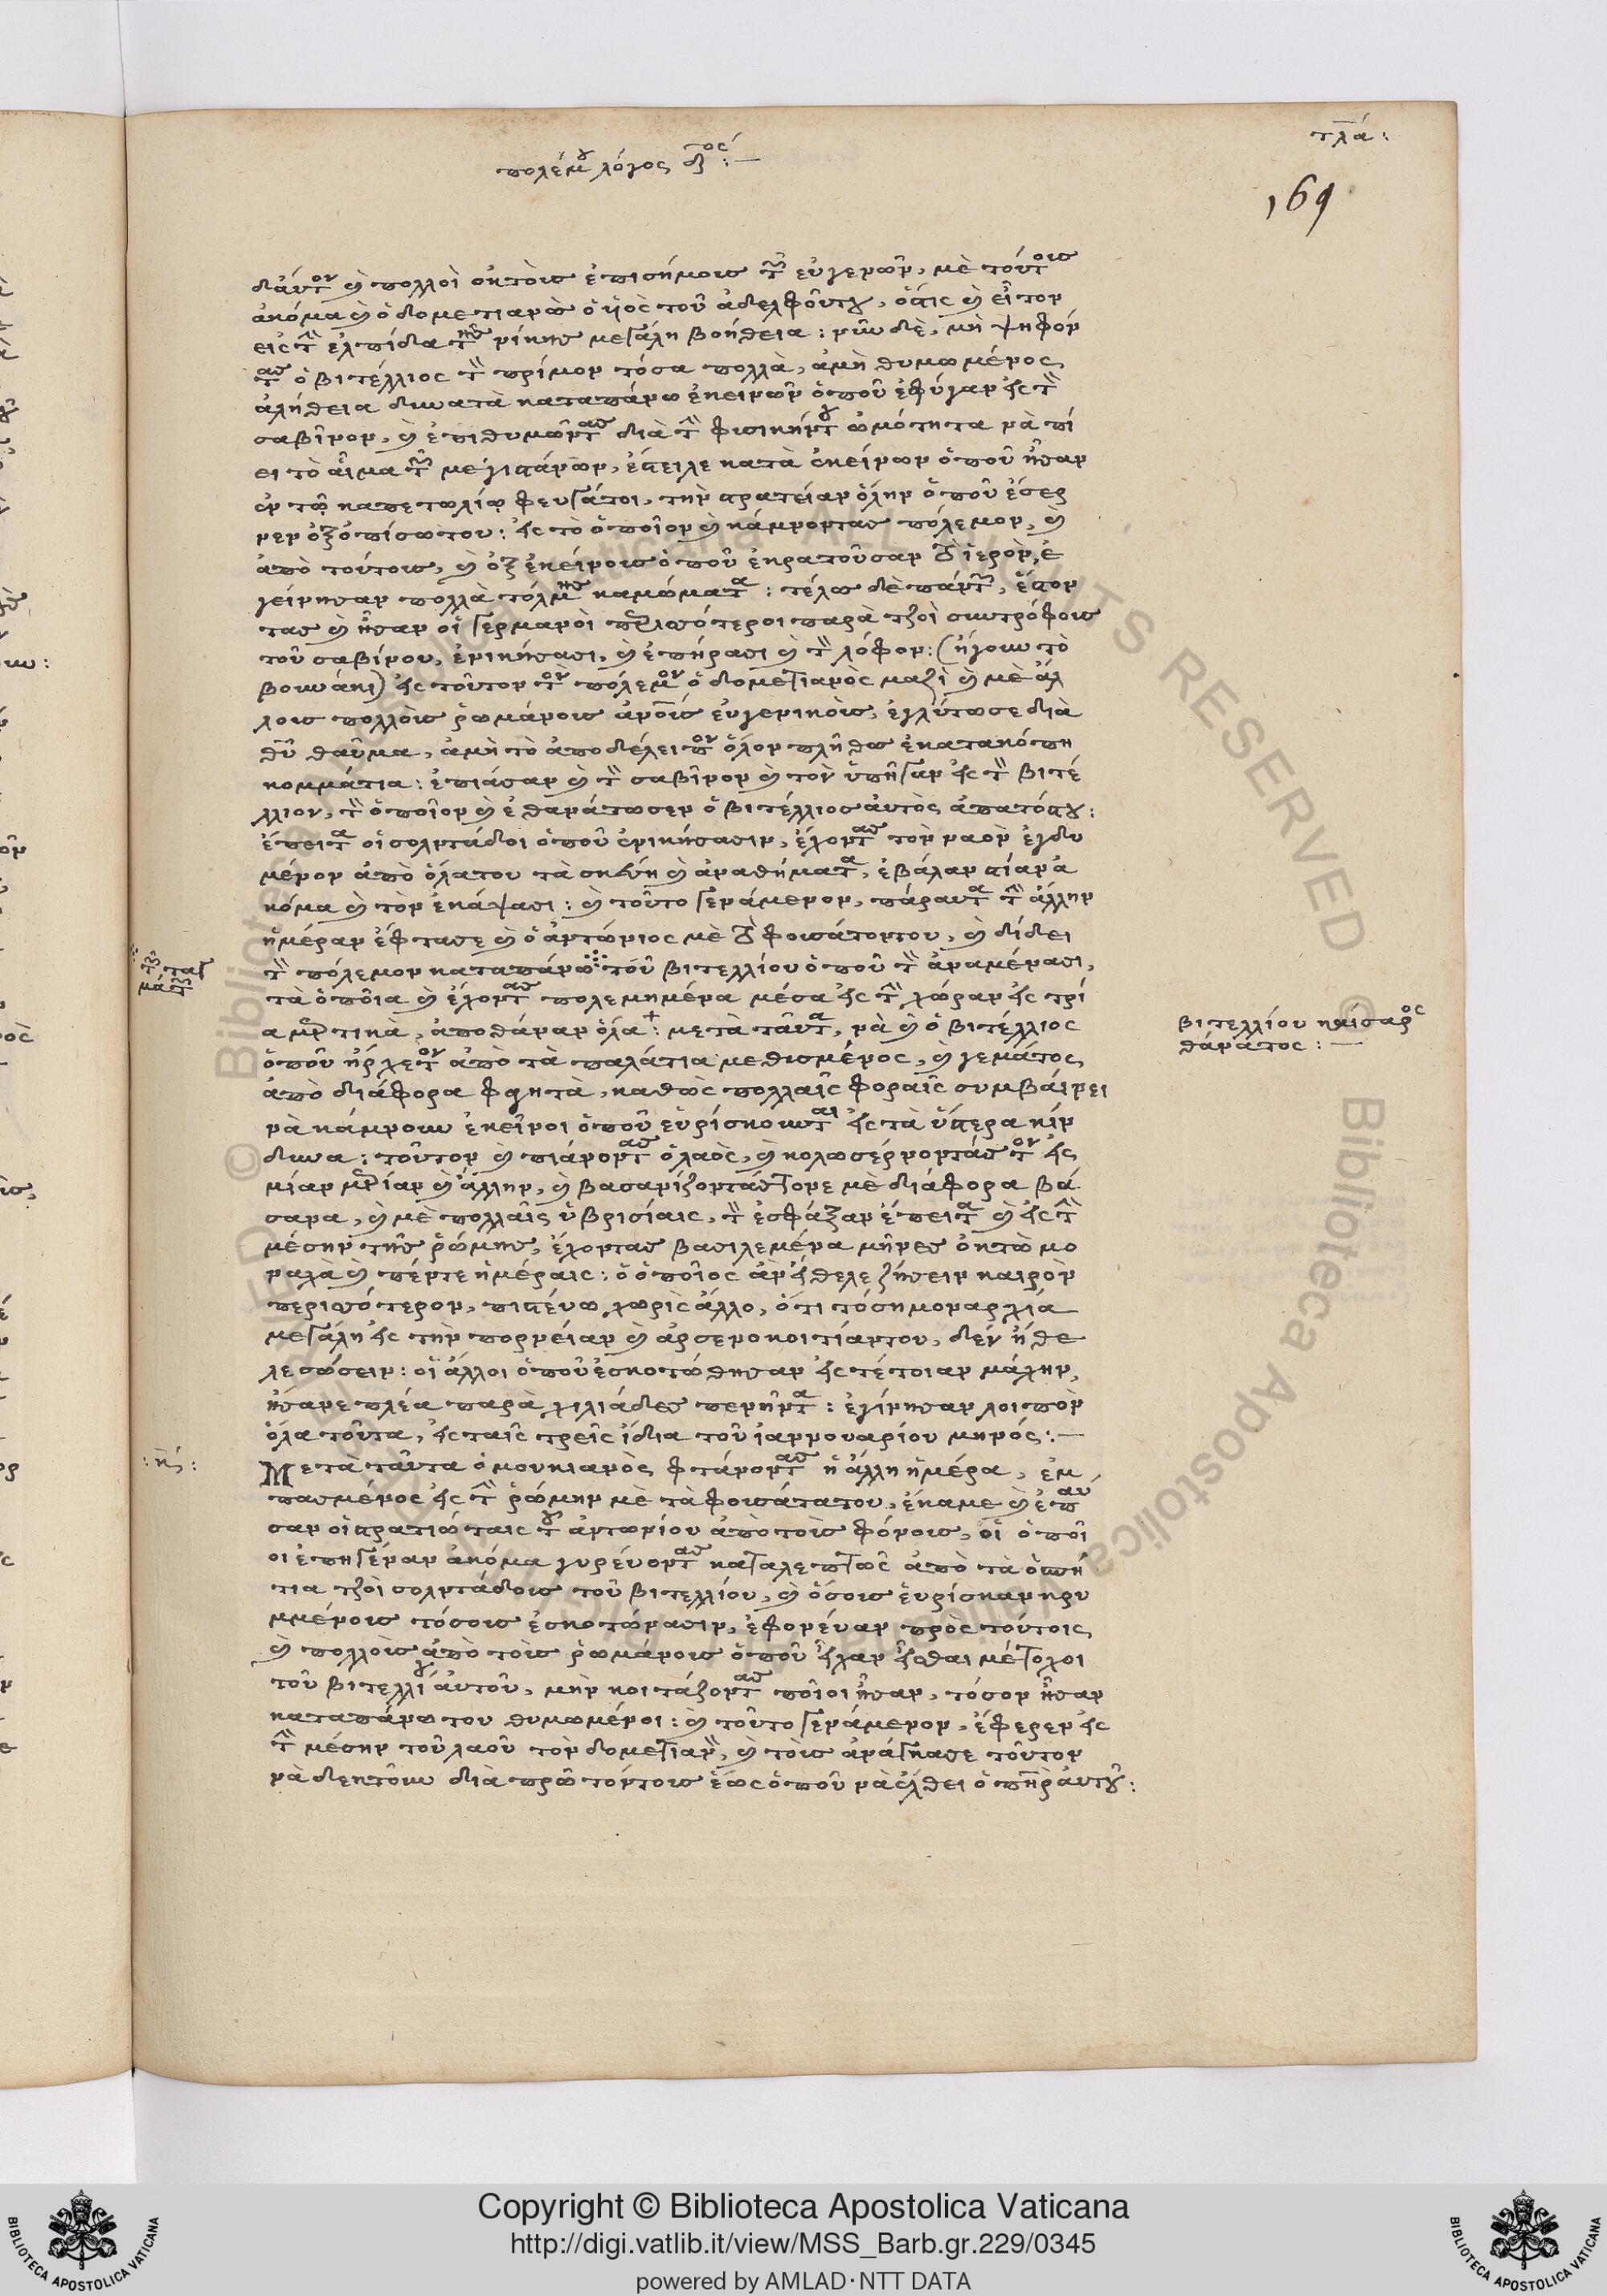 τλα:
πολέμου λόγος δος:—
169
δἀυτον καὶ πολλοὶ ἐκτοὺς ἐπισήμους τῶν εὐγενῶν, μὲ τούτους
ἀκόμα καὶ ὁ δομετιανὸς ὁ ὑιὸς τοῦ ἀδελφοῦντου, ὅστις καὶ εἶτον
εἰς τὴν ἐλπίδα τῆς νίκης μεγάλη βοήθεια: νῦν δὲ, μὴ ψηφόν
τας ὁ βιτέλλιος τὸν πρίμον τόσα πολλὰ, ἀμὴ θυμωμένος
ἀλήθεια δυνατὰ καταπάνω ἐκεινῶν ὁποῦ ἐφύγαν εἰς τὸν
σαβῖνον, καὶ ἐπιθυμῶντας διὰ τὴν φυσικήντου ὠμότητα νὰ πί
ει τὸ αἷμα τῶν μεγιστάνων, ἔστειλε κατὰ ἐκείνων ὁποῦ ἦσαν
ἐν τῷ καπετωλίῳ φευγάτοι, τὴν στρατείαν ὅλην ὁποῦ ἔσερ
νεν ὀξοπίσωτου: εἰς τὸ ὁποῖον καὶ κάμνοντας πόλεμον, καὶ
ἀπὸ τούτους, καὶ ὀξ ἐκείνους ὁποῦ ἐκρατοῦσαν τὸ ἱερὸν, ἐ
γείνησαν πολλὰ τόλμης καμώματα: τέλος δὲ πάντων, ἔστον
τας καὶ ἦσαν οἱ γερμανοὶ περισσότεροι παρὰ τζοὶ συντρόφους
τοῦ σαβίνου, ἐνικήσασι, καὶ ἐπήρασι καὶ τὸν λόφον: (ἤγουν τὸ
βουνάκι) εἰς τοῦτον τὸν πόλεμον ὁ δομετιανὸς μαζὶ καὶ μὲ ἄλ
λους πολλοὺς ῥωμάνους ἀνθρώπους εὐγενικοὺς, ἐγλύτωσε διὰ
θεοῦ θαῦμα, ἀμὴ τὸ ἀποδέλειπον ὅλον πλῆθος ἐκατακόπη
κομμάτια: ἐπιάσαν καὶ τὸν σαβῖνον καὶ τὸν ὑπῆγαν εἰς τὸν βιτέ
λλιον, τὸν ὁποῖον καὶ ἐθανάτωσεν ὁ βιτέλλιος αὐτὸς ἀπατόστου:
ἔπειτα οἱ σολντάδοι ὁποῦ ἐνικήσασιν, ἔχοντας τὸν ναὸν ἐγδυ
μένον ἀπὸ ὅλατου τὰ σκέυη καὶ ἀναθήματα, ἐβάλαν στίαν ἀ
κόμα καὶ τὸν ἐκάψασι: καὶ τοῦτο γενάμενον, πάραυτα τὴν ἄλλην
ἡμέραν ἔφτασε καὶ ὁ ἀντώνιος μὲ τὸ φουσάτοντου, καὶ δίδει
τὸν πόλεμον καταπάνω τοῦ βιτελλίου ὁποῦ τὸν ἀναμένασι,
τὰ ὁποῖα καὶ ἔχοντας πολεμημένα μέσα εἰς τὴν χώραν εἰς τρί
α μερτικὰ, ἀποθάναν ὅλα: μετὰ ταῦτα, νὰ καὶ ὁ βιτέλλιος
ὁποῦ ἤρχετον ἀπὸ τὰ παλάτια μεθυσμένος, καὶ γεμάτος
ἀπὸ διάφορα φαητὰ, καθὼς πολλαῖς φοραῖς συμβάινει
νὰ κάμνουν ἐκεῖνοι ὁποῦ εὑρίσκουνται εἰς τὰ ὕστερα κίν
δυνα: τοῦτον καὶ πιάνοντας ὁ λαὸς, καὶ κολωσέρνοντάς τον εἰς
μίαν μερίαν καὶ ἄλλην, καὶ βασανίζοντάςτονε μὲ διάφορα βά
σανα, καὶ μὲ πολλαῖς ὑβρισίαις, τὸν ἐσφάξαν ἔπειτα καὶ εἰς τὴν
μέσην τῆς ῥώμης, ἔχοντας βασιλεμένα μῆνες ὀκτὼ μο
ναχὰ καὶ πέντε ἡμέραις: ὁ ὁποῖος ἀν ἤθελε ζήσειν καιρὸν
περισσότερον, πιστέυω χωρὶς ἄλλο, ὅτι τόση μοναρχία
μεγάλη εἰς τὴν πορνείαν καὶ ἀρσενοκοιτίαντου, δὲν ἤθε
λε σώσειν: οἱ ἄλλοι ὁποῦ ἐσκοτώθησαν εἰς τέτοιαν μάχην,
ἤσανε πλέα παρὰ χιλιάδες πενῆντα: ἐγίνησαν λοιπὸν
ὅλα τοῦτα, εἰς ταῖς τρεῖς ἴδια τοῦ ἰαννουαρίου μηνός:—
Μετὰ ταῦτα ὁ μουκιανὸς φτάνοντας ἡ ἄλλη ἡμέρα, ἐμ
πασμένος εἰς τὴν ῥώμην μὲ τὰ φουσάτατου, ἔκαμε καὶ ἐπάυ
σαν οἱ στρατιώταις τοῦ ἀντωνίου ἀπὸ τοὺς φόνους, οἱ ὁποῖ
οι ἐπηγέναν ἀκόμα γυρέυοντας καταλεπτῶς ἀπὸ τὰ ὁσπή
τια τζοὶ σολντάδους τοῦ βιτελλίου, καὶ ὅσους ἑυρίσκαν κρυ
μμένους τόσους ἐσκοτώνασιν, ἐφονέυαν πρὸς τούτοις
καὶ πολλοὺς ἀπὸ τοὺς ῥωμάνους ὁποῦ εἶχαν εἶσθαι μέτοχοι
τοῦ βιτελλίου ἀυτοῦ, μὴν κοιτάζοντας ποῖοι ἦσαν, τόσον ἦσαν
καταπάνω του θυμωμένοι: καὶ τοῦτο γενάμενον, ἔφερεν εἰς
τὴν μέσην τοῦ λαοῦ τὸν δομετιανὸν, καὶ τοὺς ἀνάγκασε τοῦτον
νὰ δεκτοῦν διὰ πρῶ τοντους ἕως ὁποῦ νὰ ἔλθει ὁ πατὴρ ἀυτοῦ:
βιτελλίου καίσαρος
θάνατος:—
:κς: